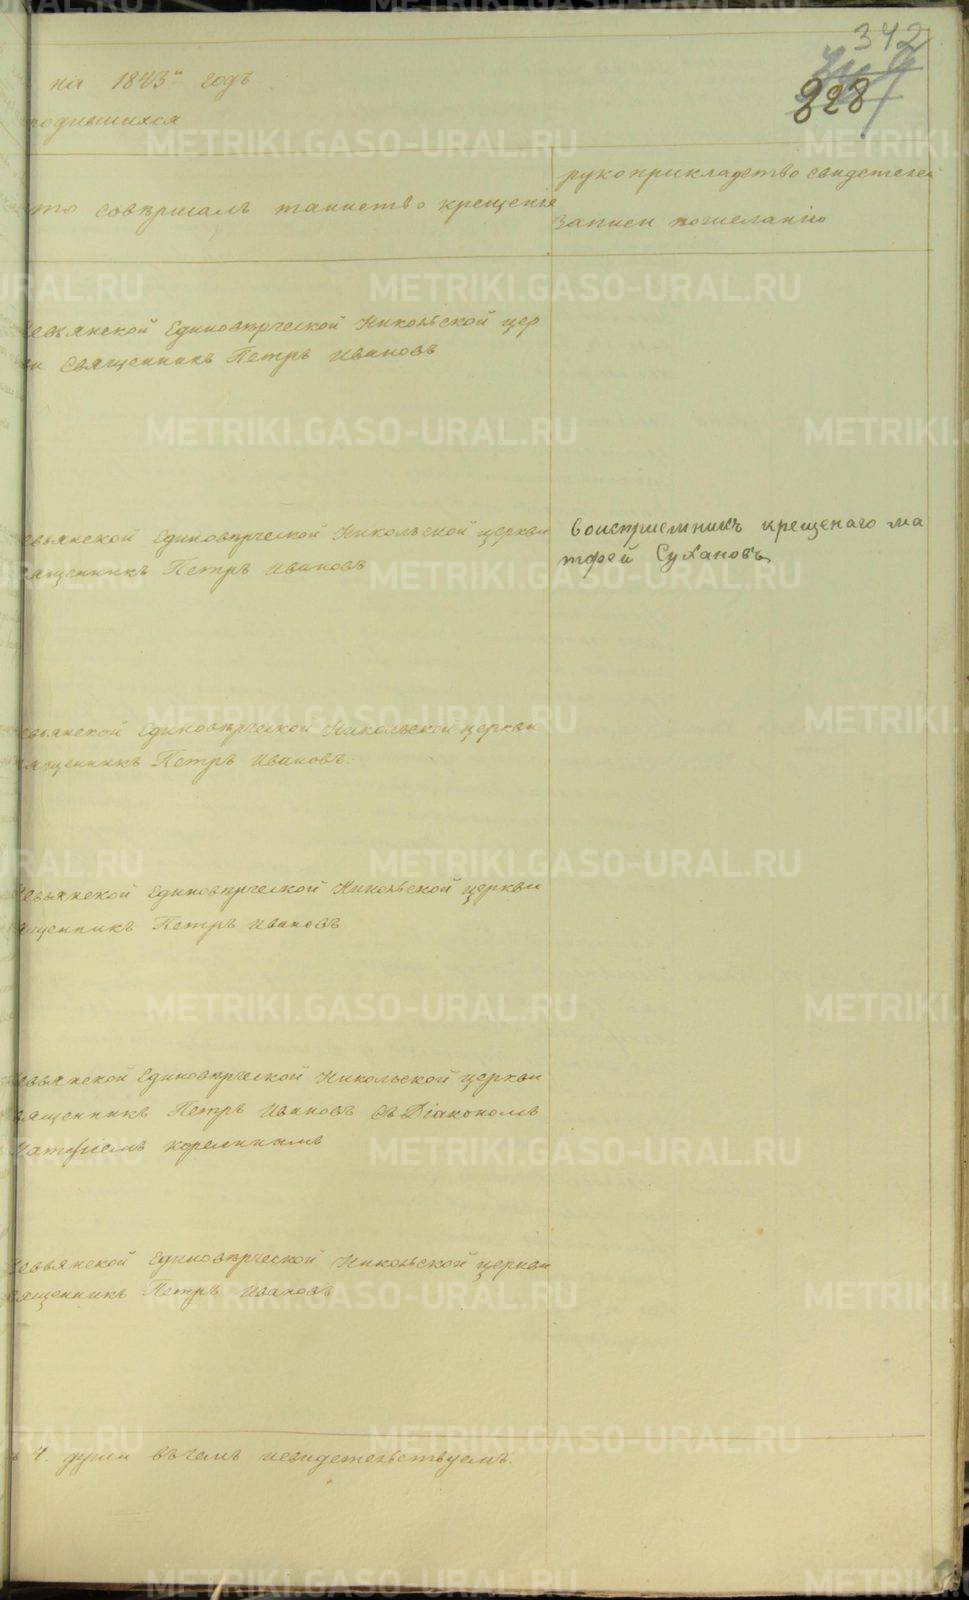 342
228
на 1843й годъ
родившихся
кто совершалъ таинство крещенія
рукоприкладство свидетелей
записи пожеланію
Невьянской Единоверческой Никольской цер
кви Священникъ Петръ Ивановъ
Невьянской Единоверческой Никольской церкви
Священникъ Петръ Ивановъ
Воисприемникъ крещенаго ма
тфей Сухановъ
Невьянской Единоверческой Никольской церкви
Священникъ Петръ Ивановъ.
Невьянской Единоверческой Никольской церкви
Священникъ Петръ Ивановъ
Невьянской Единоверческой Никольской церкви
Священникъ Петръ Ивановъ Съ Діакономъ
Невьянской Единоверческой Никольской церкви
Священникъ Петръ Ивановъ
4. души въ чемъ исвидетельствуемъ.
METRIKI.GASO-URAL.RU